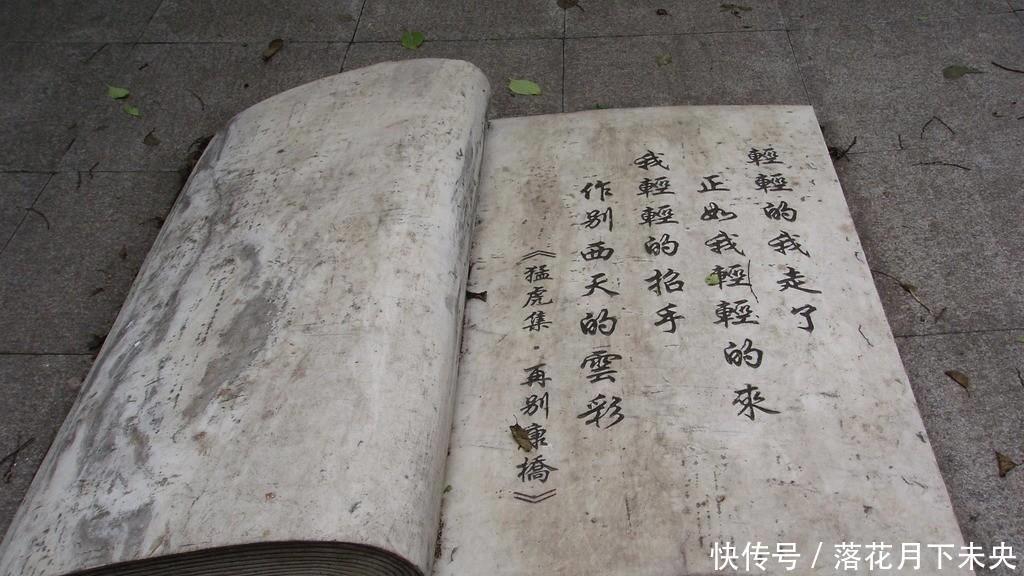 輕輕的我走了
正如我輕輕的來
我輕輕的招手
作別西天的雲彩
《猛虎集·再別康橋》
快传号 / 落花月下未央